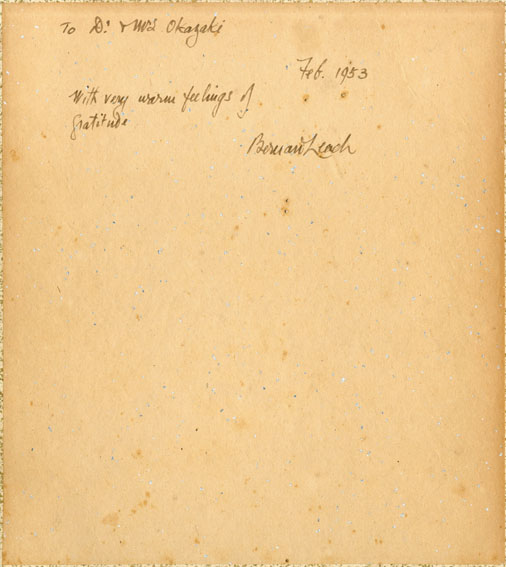 To Dr & Mrs Okazaki
Feb. 1953
With very warm feelings of
gratitude
Bernard Leach